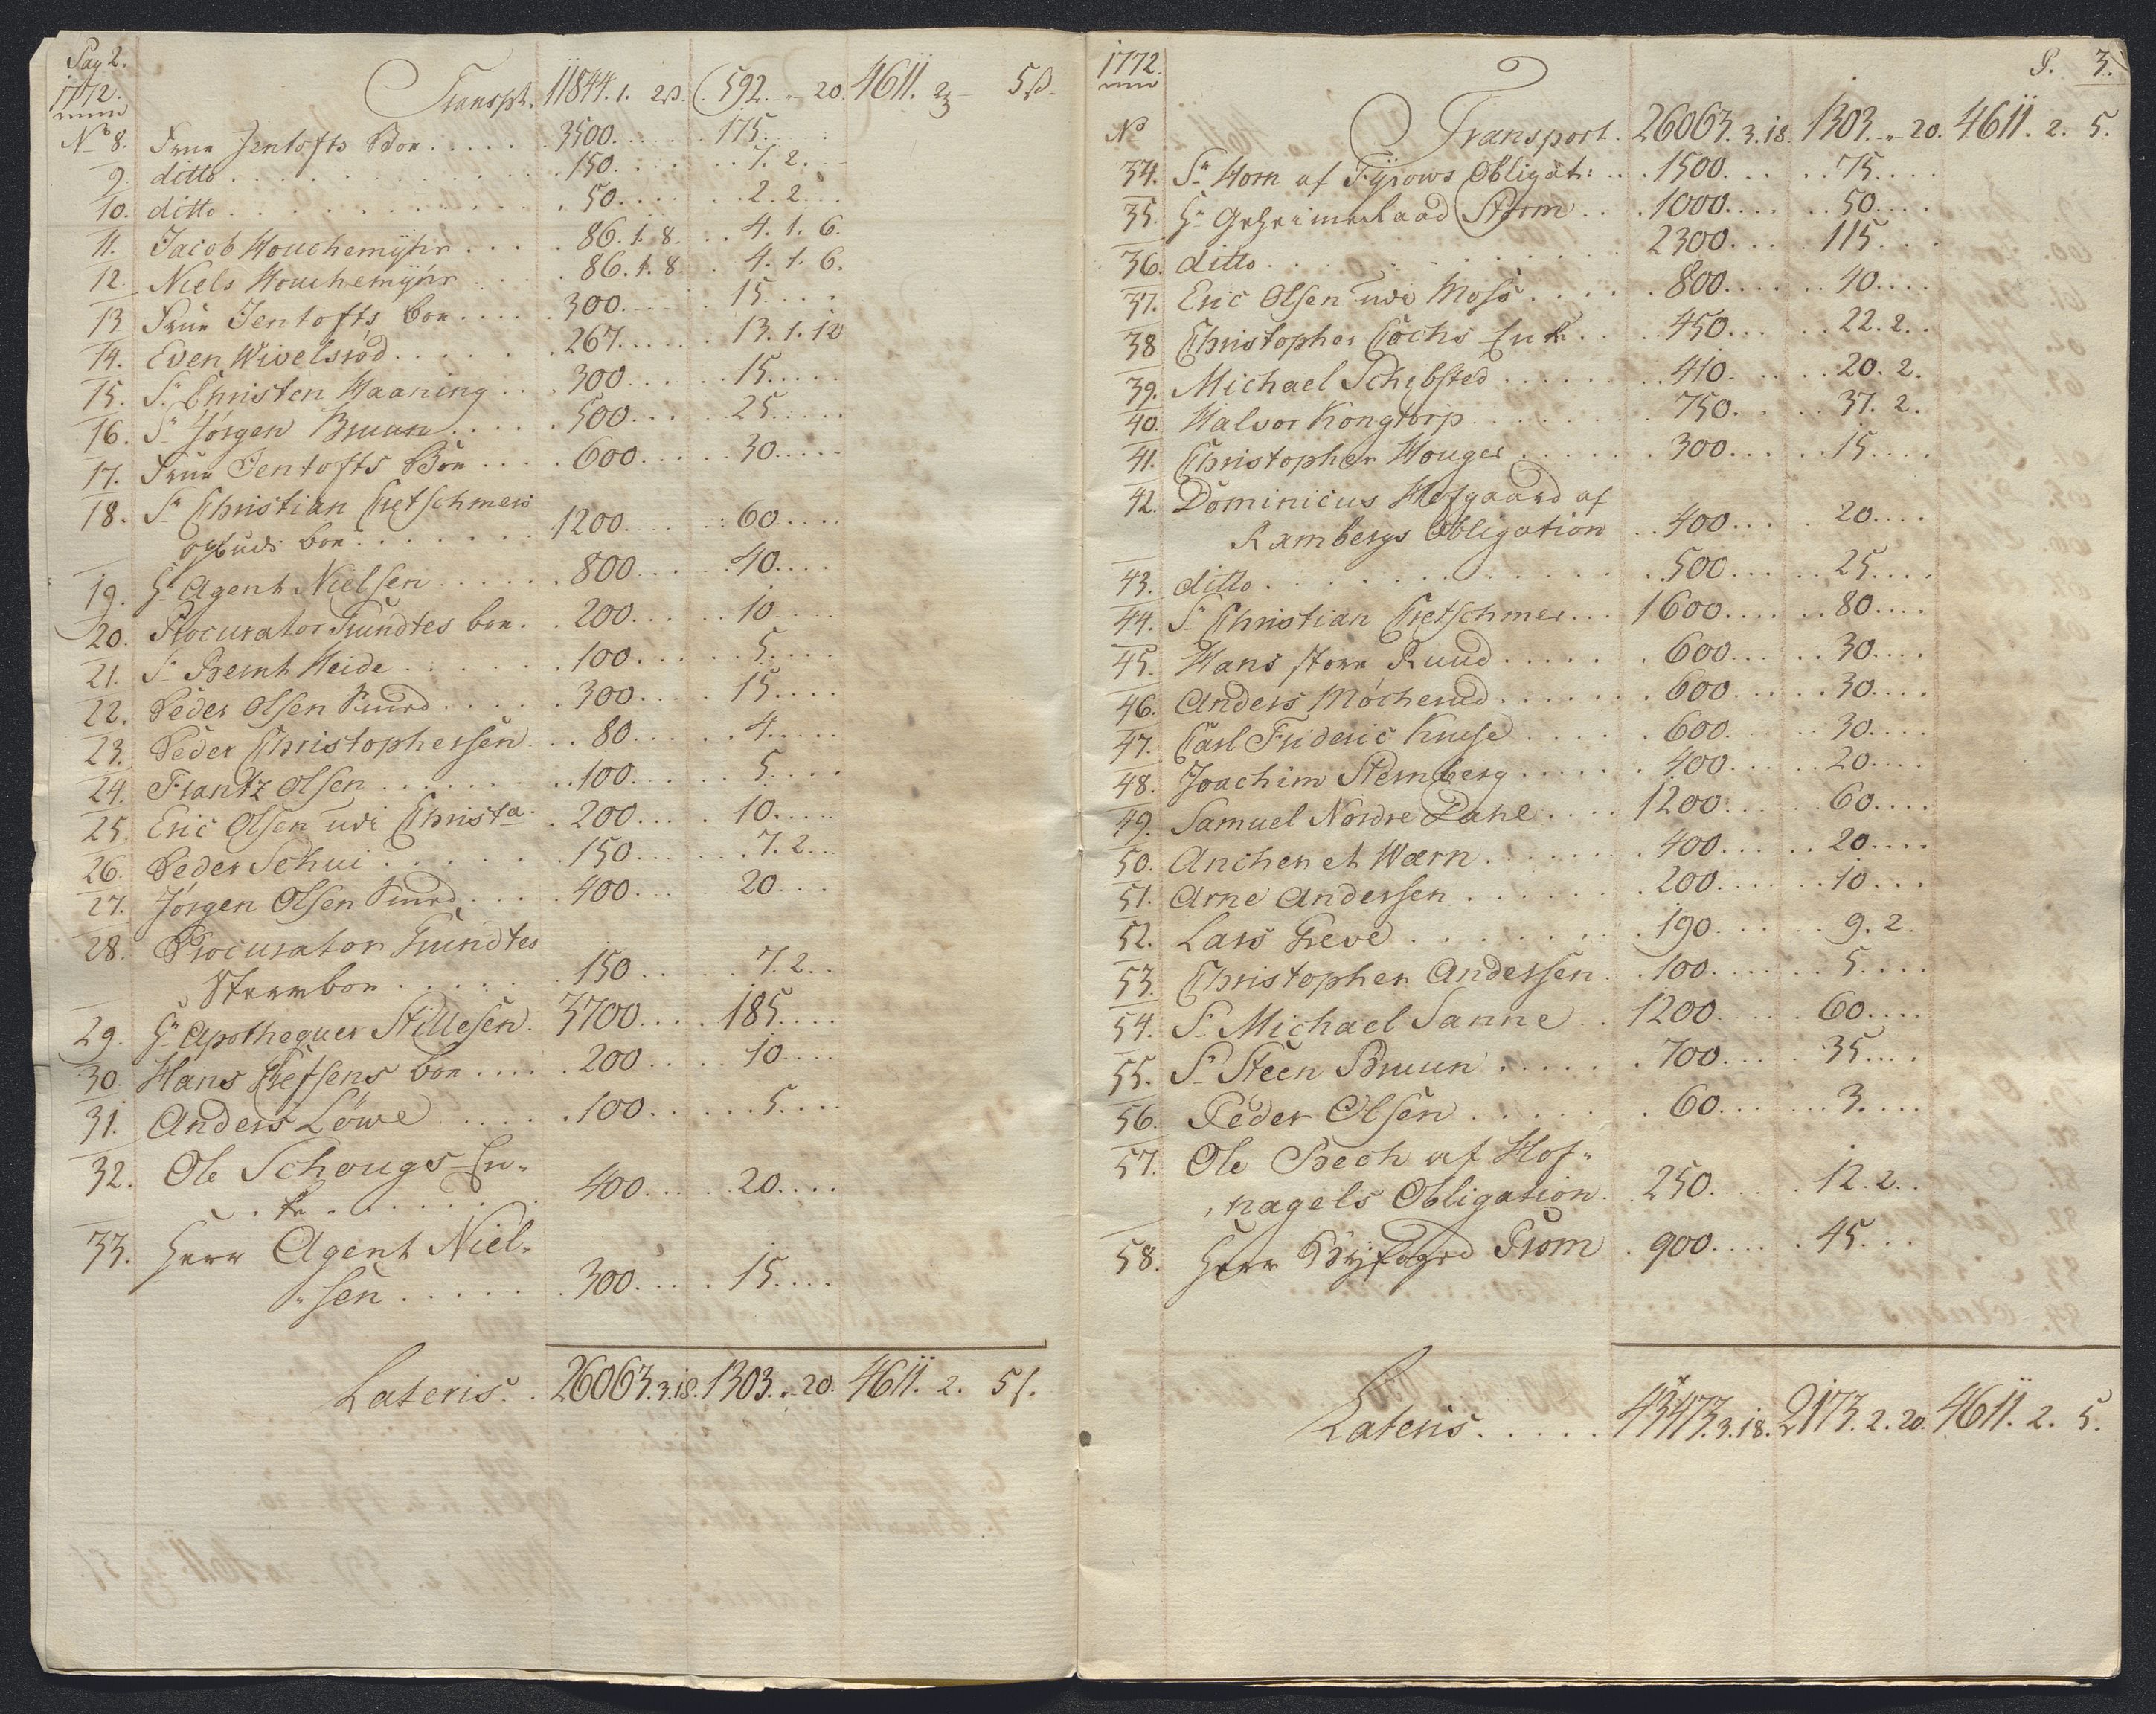 Pag 2.
1772.
Transpt. 11844. 1. 2ß. 592. - 20. 4611. 2 5ß.
No 8. Frue Jentofts Boe 3500. 175.
9. ditto 150. 7. 2.
10. ditto 50. 2. 2.
11. Jacob Houchemyhr 86. 1. 8. 4. 1. 6.
12. Niels Houchemyhr 86. 1. 8. 4. 1. 6.
13 Frue Jentofts boe 300. 15.
14. Even Wivelsröd 267. 13. 1. 12
15. Sr. Christen Haaning 300 15.
16. Sr Jörgen Bruun 500. 25.
17. Frue Jentofts Boe 600. 30.
18. Sr Christian Cretschmers
opbuds boe 1200. 60.
19. Hr Agent Nielsen 800. 40.
20. Procurator Trundtes boe. 200. 10.
21. Sr Bernt Heide 100. 5.
22. Peder Olsen Ruud 300. 15.
23. Peder Christophersen 80. 4.
24. Frantz Olsen 100. 5.
25. Eric Olsen udi Christa. 200. 10.
26. Peder Schui 150. 7. 2.
27. Jörgen Olsen Ruud 400. 20.
28. Procurator Trundtes
Sterrvboe 150. 7. 2.
29. Hr Apothequer Stillesen. 3700. 185.
30. Hans boe 200. 10.
31. Anders Löwe 100. 5.
32. Ole Schougs En-
ke 400. 20.
33. Herr Agent Niel-
sen 300. 15.
Lateris. 26063. 3. 18. 1303. - 20. 4611. 2. 5ß.
1772. P. 3.
No Transport. 26063. 3. 18. 1303. - 20. 4611. 2. 5.
34. Sr Horn af Fyrows Obligat: 1500. 75.
35. Hr Geheimeraad Storm 1000. 50.
36. ditto 2300. 115.
37. Eric Olsen udi Moss 800. 40.
38 Christopher Cochs Enke 450. 22. 2.
39. Michael Schibsted 410. 20. 2.
40. Halvor Kongtorp 750. 37. 2.
41. Christopher Houger 300. 15.
42. Dominicus Hofgaard af
Rambergs Obligation 400. 20.
43. ditto 500. 25.
44. Sr Christian Cretschmer 1600. 80.
45. Hans store Ruud 600. 30.
46. Anders Möcherud 600. 30.
47. Carl Frideric Kruse 600. 30.
48. Joachim Sternberg 400. 20.
49. Samuel Nordre Dahl 1200. 60.
50. Ancher et Wærn 400. 20.
51. Arne Andersen 200. 10.
52. Lars Greve 190. 9. 2.
53. Christopher Andersen 100. 5.
54. Sr Michael Sanne 1200. 60.
55. Sr Steen Bruun 700. 35.
56. Peder Olsen 60. 3.
57. Ole Bech af Hof-
nagels Obligation. 250. 12. 2.
58. Herr Byefoged From 900. 45.
Lateris 43473. 3. 18. 2173. 2. 20. 4611. 2. 5.